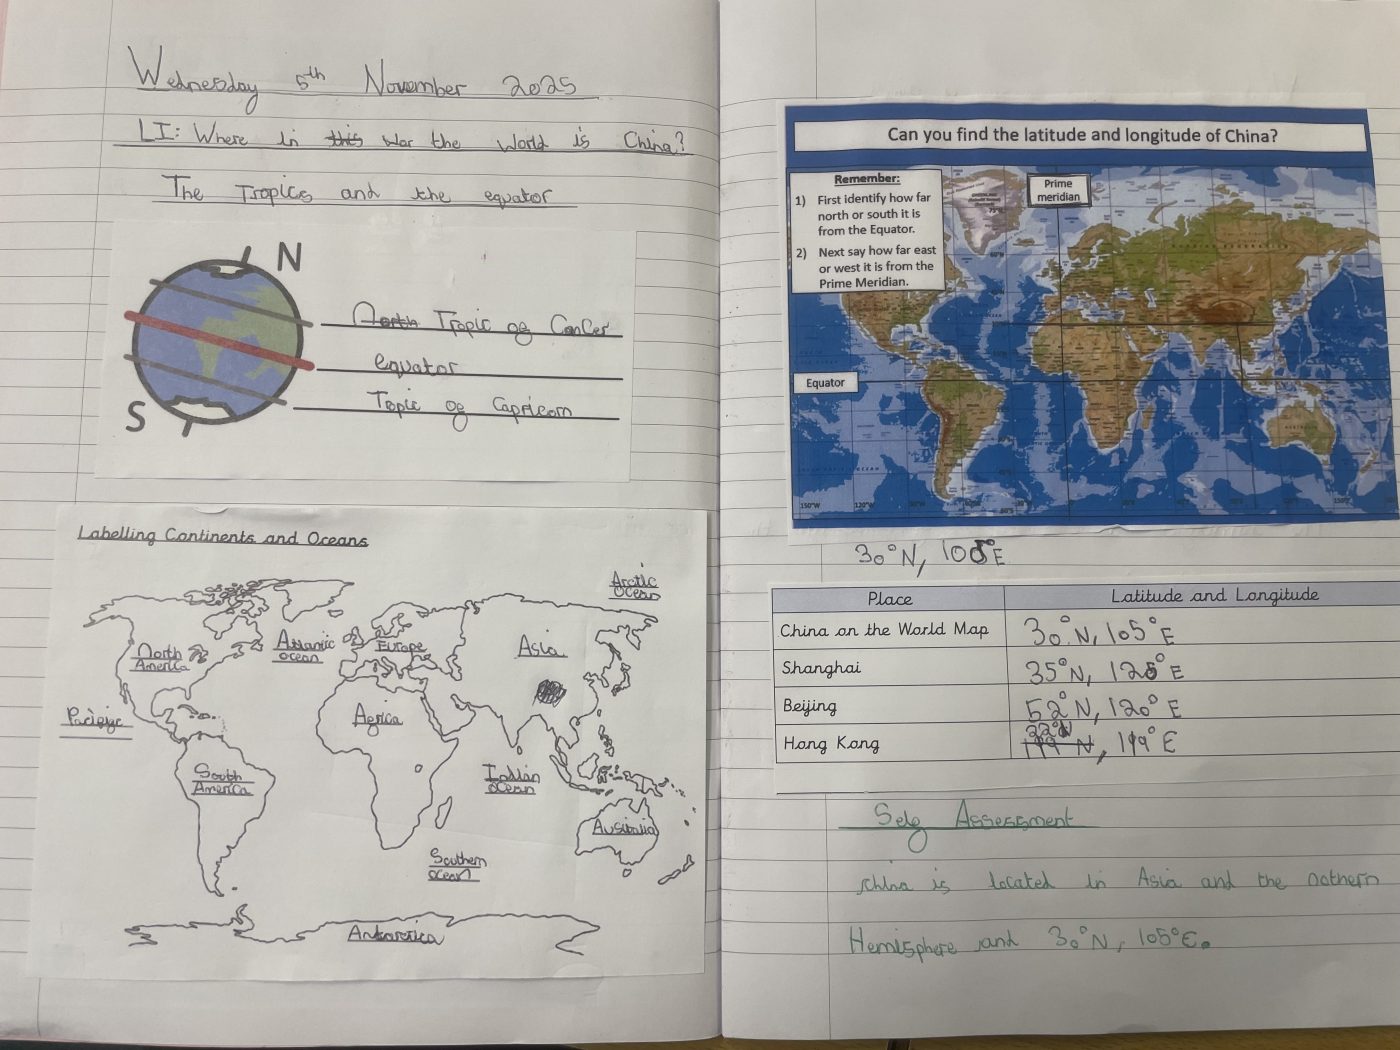 Wednesday 5th November 2025
LI: Where in this war the world is China?
The Tropics and the equator
N
North Tropic of Cancer
equator
Topic of Capricorn
S
Labelling Continents and Oceans
Arctic Ocean
North America
Atlantic ocean
Europe
Asia
Pacific
Africa
South America
Indian ocean
Australia
Southern ocean
Antarctica
Can you find the latitude and longitude of China?
Remember:
1) First identify how far north or south it is from the Equator.
2) Next say how far east or west it is from the Prime Meridian.
Prime meridian
Equator
150°W 120°W
30°N, 105°E
Place Latitude and Longitude
China on the World Map 30°N, 105°E
Shanghai 35°N, 125°E
Beijing 52°N, 120°E
Hong Kong 22°N 119°N, 119°E
Self Assessment
China is located in Asia and the nothern
Hemisphere and 30°N, 105°E.